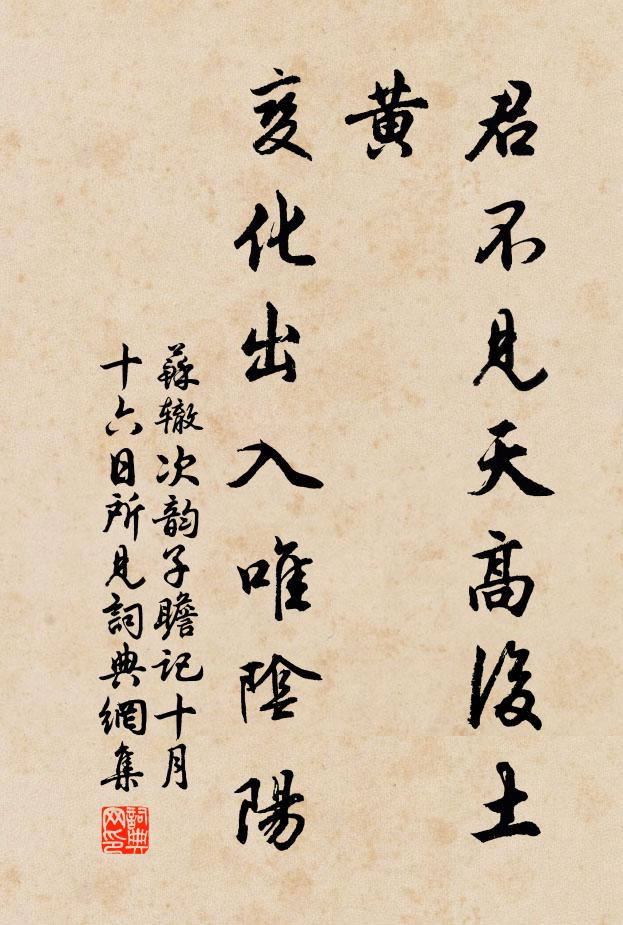 君不見天高後土
黃
變化出入唯陰陽
蘇辙次韵子瞻記十月
十六日所見詞典網集
詞典
网印